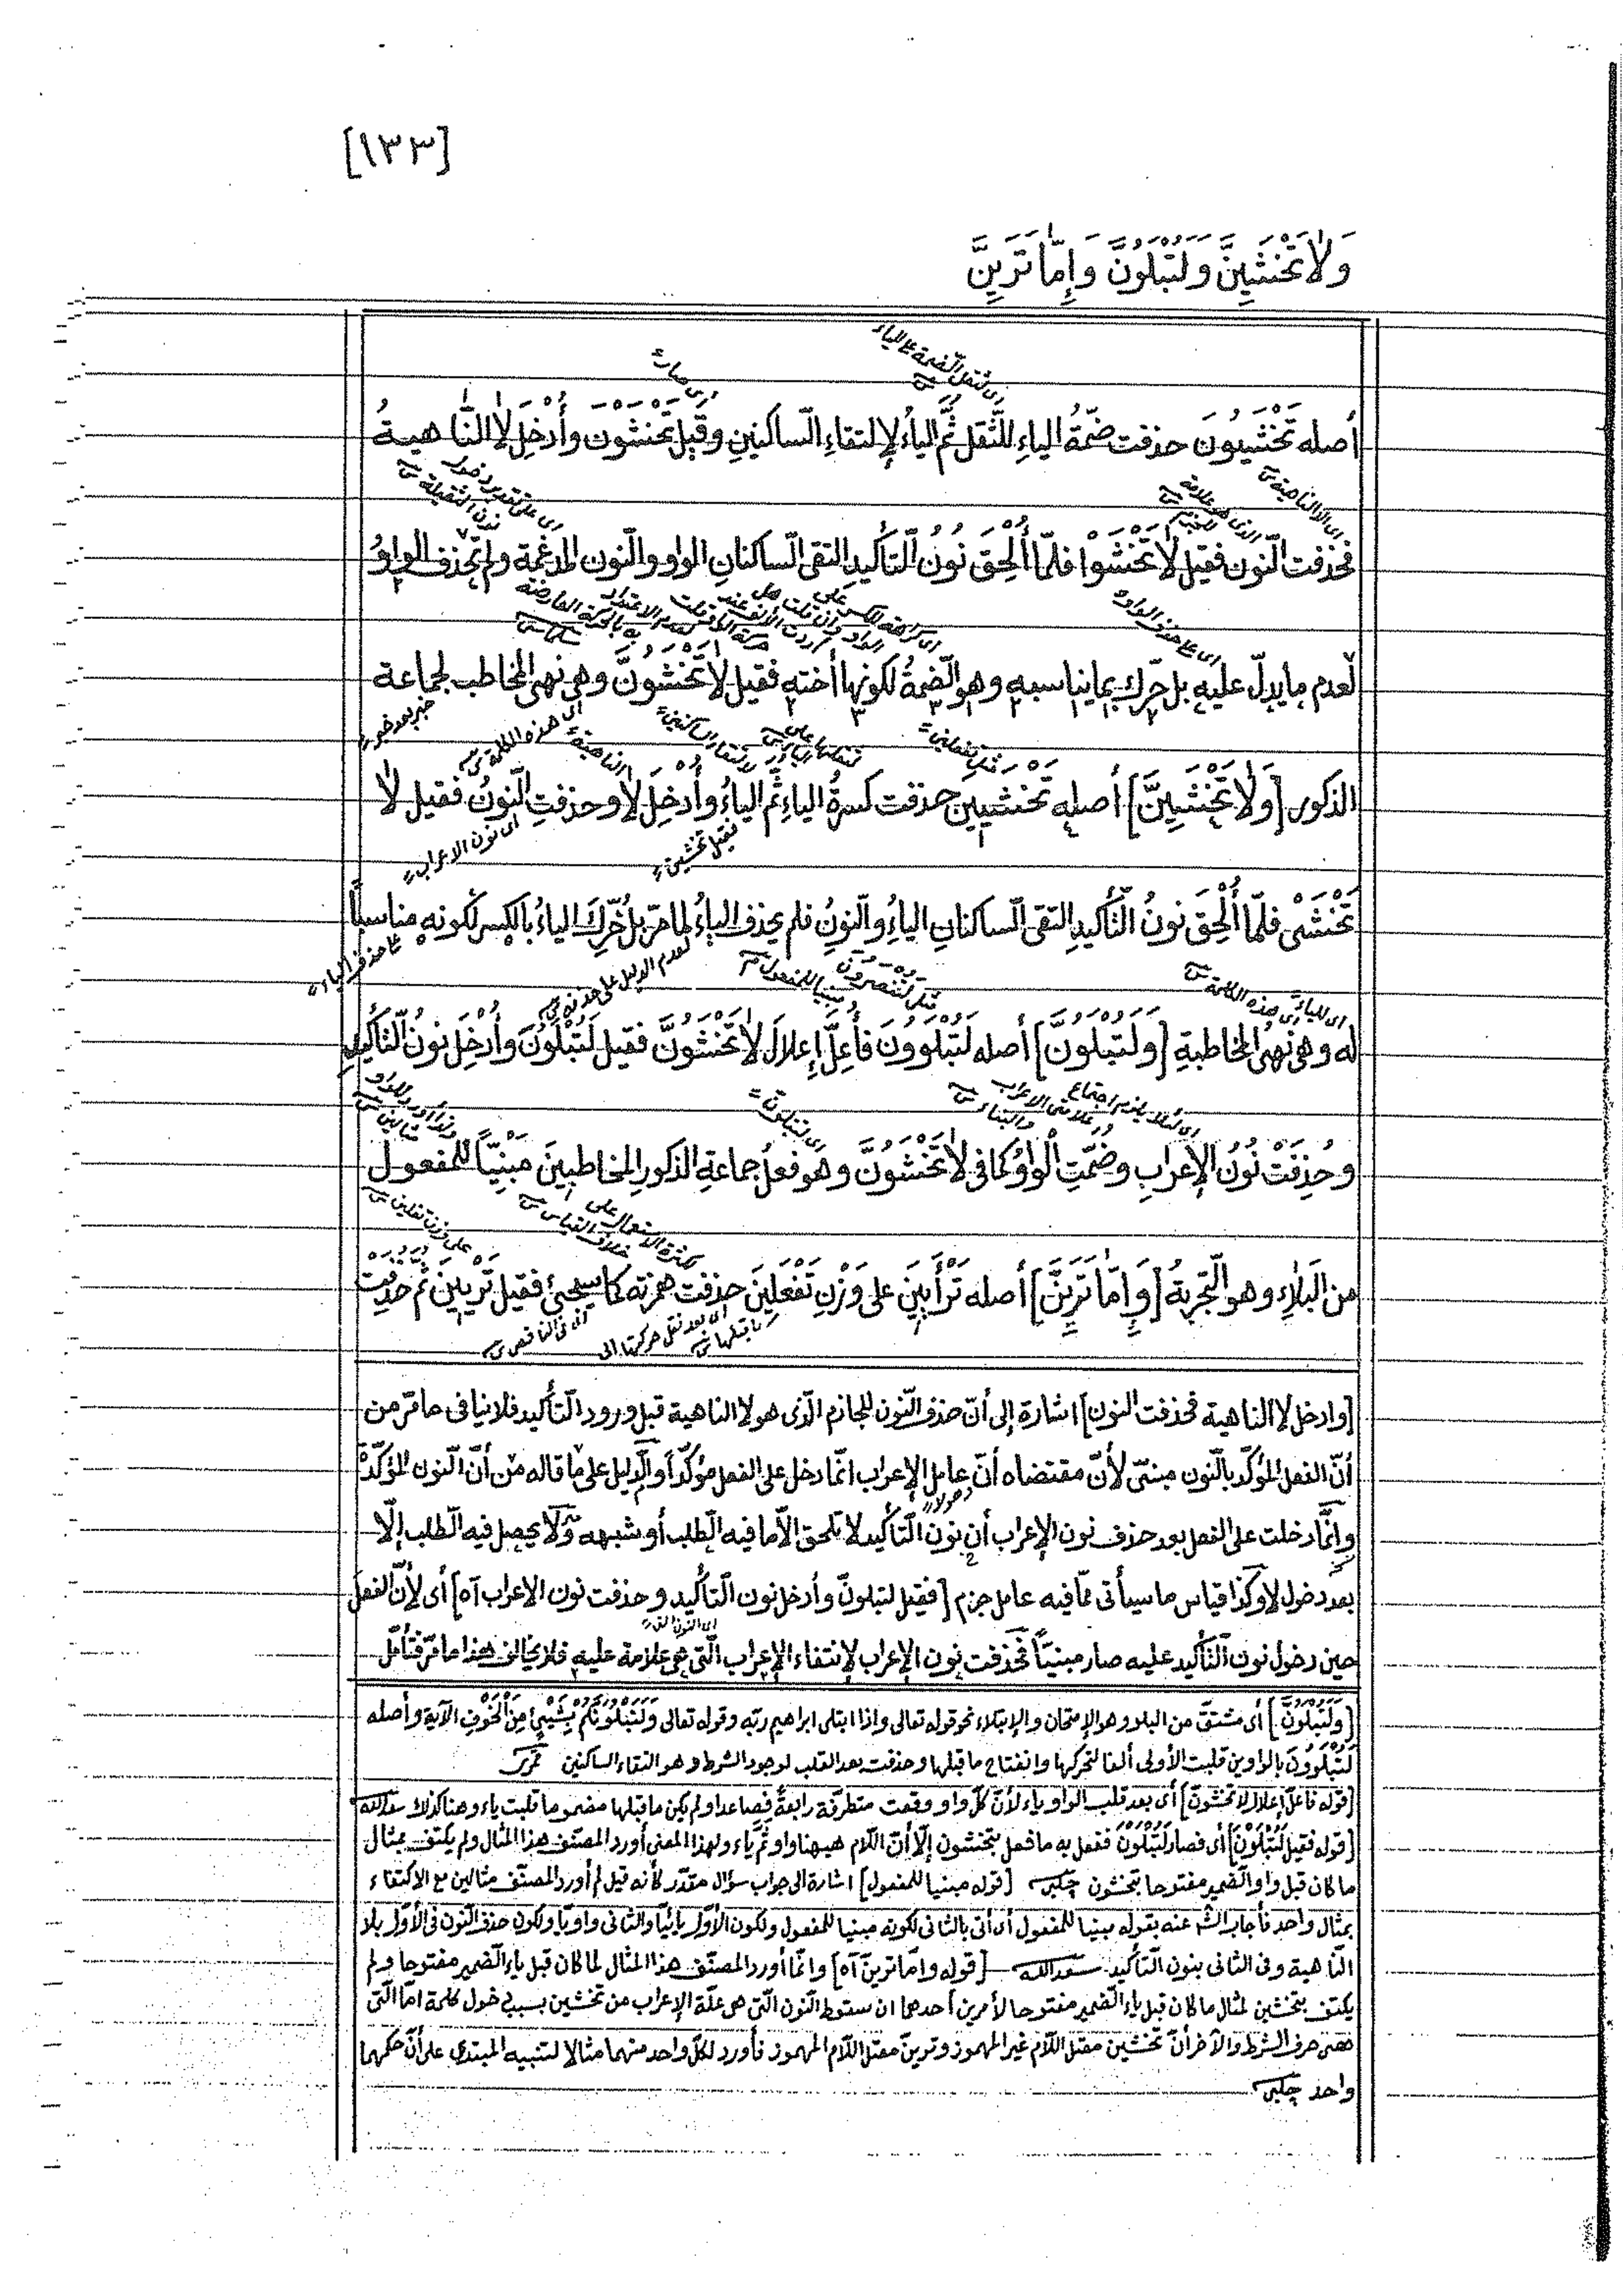 [١٣٣]
وَلَا تَخْشَيِنَّ وَلَتُبْلَوُنَّ وَإِمَّا تَرَيِنَّ
أى لثقل الضمة على الياء
أصله تَخْشَيُونَ حذفت ضمّةُ الياءِ للثّقل ثمّ الياءُ لإلتقاءِ السّاكنينِ وقيل تَخْشَوْنَ وأُدْخِلَ لَا النّاهيةُ
أى لا الناهية
فحذفت النّون فقيل لَا تَخْشَوْا فلمّا أُلْحِقَ نُونُ التّأكيدِ التقى السّاكنانِ الواو والنّون المدغمة ولم تحذف الواوُ
أى على حذف الواو
لعدم ما يدلّ عليه بل حرّك بما يناسبه وهو الضمةُ لكونها أخته فقيل لَا تَخْشَوُنَّ وهى نهى المخاطب لجماعة
الذكور [وَلَا تَخْشَيِنَّ] أصله تَخْشَيِينَ حذفت كسرةُ الياءِ ثمّ الياءُ وأُدْخِلَ لَا وحذفتِ النّونُ فقيل لَا
فقيل تخشين
أى نون الاعراب
تَخْشَىْ فلمّا أُلْحِقَ نونُ التّأكيدِ التقى السّاكنانِ الياءُ والنّونُ فلم يحذف الياءُ لما مرّ بل حُرِّكَ الياءُ بالكسر لكونه مناسبًا
لعدم الدليل على حذفه
أى هذه الكلمة
أى للياء
له وهى نهىُ المخاطبةِ [وَلَتُبْلَوُنَّ] أصله لَتُبْلَوُونَ فأُعِلَّ إعلالَ لَا تَخْشَوُنَّ فقيل لَتُبْلَوْنَ وأُدْخِلَ نونُ التّأكيدِ
أى لئلا يلزم اجتماع علامتى الاعراب والبناء
أى لتبلونّ
وحُذِفَتْ نُونُ الإعرابِ وضُمَّتِ الواوُ كما فى لَا تَخْشَوُنَّ وهو فعلُ جماعةِ الذكورِ المخاطبينَ مبنيًّا للمفعول
لكثرة الاستعمال على خلاف القياس
على وزن تفلين
من البَلَاءِ وهو التّجربةُ [وَإِمَّا تَرَيِنَّ] أصله تَرْأَيِينَ على وَزْنِ تَفْعَلِينَ حذفت همزته كما سيجئ فقيل تَرَيِينَ ثم حذفت
أى بعد نقل حركتها الى ما قبلها
أى فى الناقص
[وادخل لا الناهية فحذفت النون] اشارة إلى أنّ حذف النّون للجازم الّذى هو لا الناهية قبل ورود التّأكيد فلا ينافى ما مرّ من
أنّ الفعل المؤكّد بالنّون مبنىّ لأنّ مقتضاه أنّ عامل الإعراب انّما دخل على الفعل مؤكّدًا والدّليل على ما قاله من أنّ النّون المؤكّدة
وإنّما دخلت على الفعل بعد حذف نون الإعراب أن نون التّأكيد لا تلحق الّا ما فيه الطّلب أو شبهه ولا يحصل فيه الطّلب إلّا
بعد دخول لا وكذا قياس ما سيأتى ممّا فيه عامل جزم [فقيل لتبلونّ وأدخل نون التّأكيد وحذفت نون الاعراب آه] أى لأنّ الفعل
حين دخول نون التّأكيد عليه صار مبنيًّا فحذفت نون الإعراب لإنتفاء الإعراب الّتى هى علامة عليه فلا يخالف هذا ما مرّ فتأمّل
[وَلَتُبْلَوُنَّ] أى مشتقّ من البلاء وهو الإمتحان والإبتلاء نحو قوله تعالى وإذا ابتلى ابراهيم ربّه وقوله تعالى وَلَنَبْلُوَنَّكُمْ بِشَيْئٍ مِنَ الْخَوْفِ الآية وأصله
لَتُبْلَوُونَ بالواوين قلبت الأولى ألفا لتحركها وانفتاح ما قبلها وحذفت بعد القلب لوجود الشرط وهو التقاء الساكنين
[قوله فاعلّ إعلال لا تخشونّ] أى بعد قلب الواو ياء لأنّ كلّ واو وقعت متطرّفة رابعةً فصاعدا ولم يكن ما قبلها مضموما قلبت ياء وهنا كذلك سعد الله
[قوله فقيل لَتُبْلَوْنَ] أى فصار لَتُبْلَوْنَ ففعل به ما فعل بتخشون إلّا أنّ اللّام هيهنا واو ثمّ ياء ولهذا المعنى أورد المصنّف هذا المثال ولم يكتف بمثال
ما كان قبل واو الضّمير مفتوحا بتخشون چلبى [قوله مبنيا للمفعول] اشارة الى جواب سؤال مقدّر كأنه قيل لم أورد المصنّف مثالين مع الاكتفاء
بمثال واحد فأجاب الشّ عنه بقوله مبنيا للمفعول أى أتى بالثانى لكونه مبنيا للمفعول ولكون الأوّل يائيّا والثانى واويّا ولكون حذف النّون فى الأوّل بلا
النّاهية وفى الثانى بنون التّأكيد سعد الله [قوله وامّا ترينّ آه] وانّما أورد المصنّف هذا المثال لما كان قبل ياء الضّمير مفتوحا ولم
يكتف بتخشين لمثال ما كان قبل ياء الضّمير مفتوحا لأمرين أحدهما ان سقوط النّون الّتى هى علّة الإعراب من تخشين بسبب دخول كلمة امّا الّتى
هى حرف الشرط والآخر أنّ تخشين معتلّ اللّام غير المهموز وترينّ معتلّ اللّام المهموز فأورد لكلّ واحد منهما مثالا لتنبيه المبتدى على أنّ حكمهما
واحد چلبى